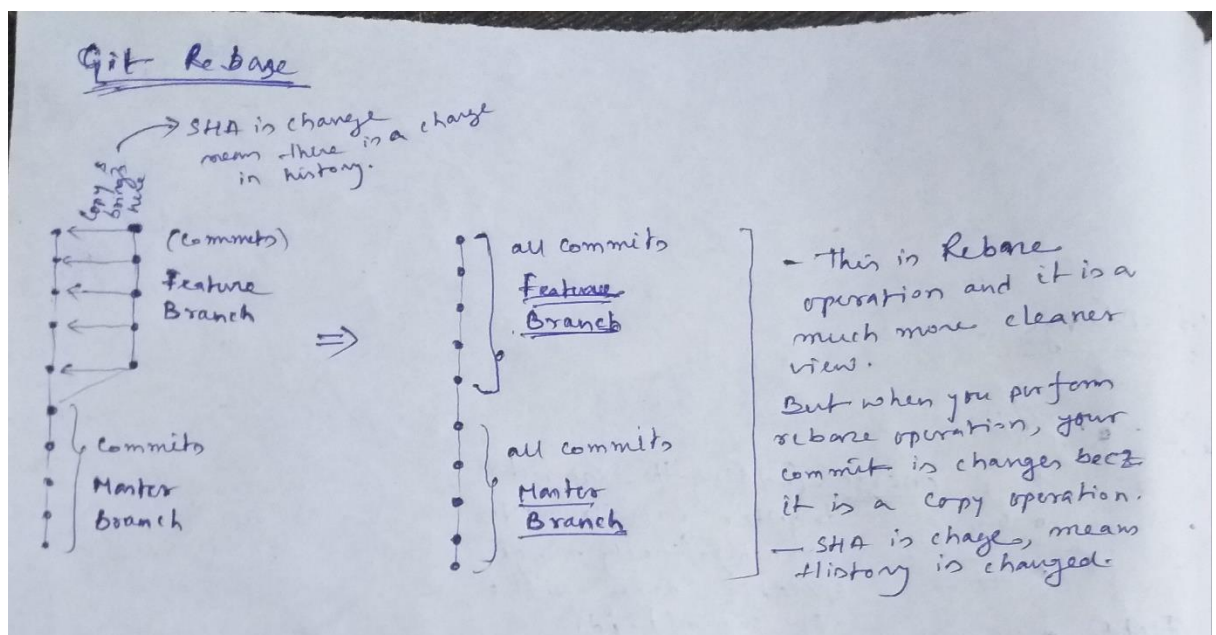 Git Rebase
SHA is change
mean there is a change
in history.
Copy &
brings
here
(Commits)
Feature
Branch
Commits
Master
branch
⇒
all commits
Feature
Branch
all commits
Master
Branch
- This is Rebase
operation and it is a
much more cleaner
view.
But when you perform
rebase operation, your
commit is changes becz
it is a copy operation.
- SHA is chage, means
History is changed.